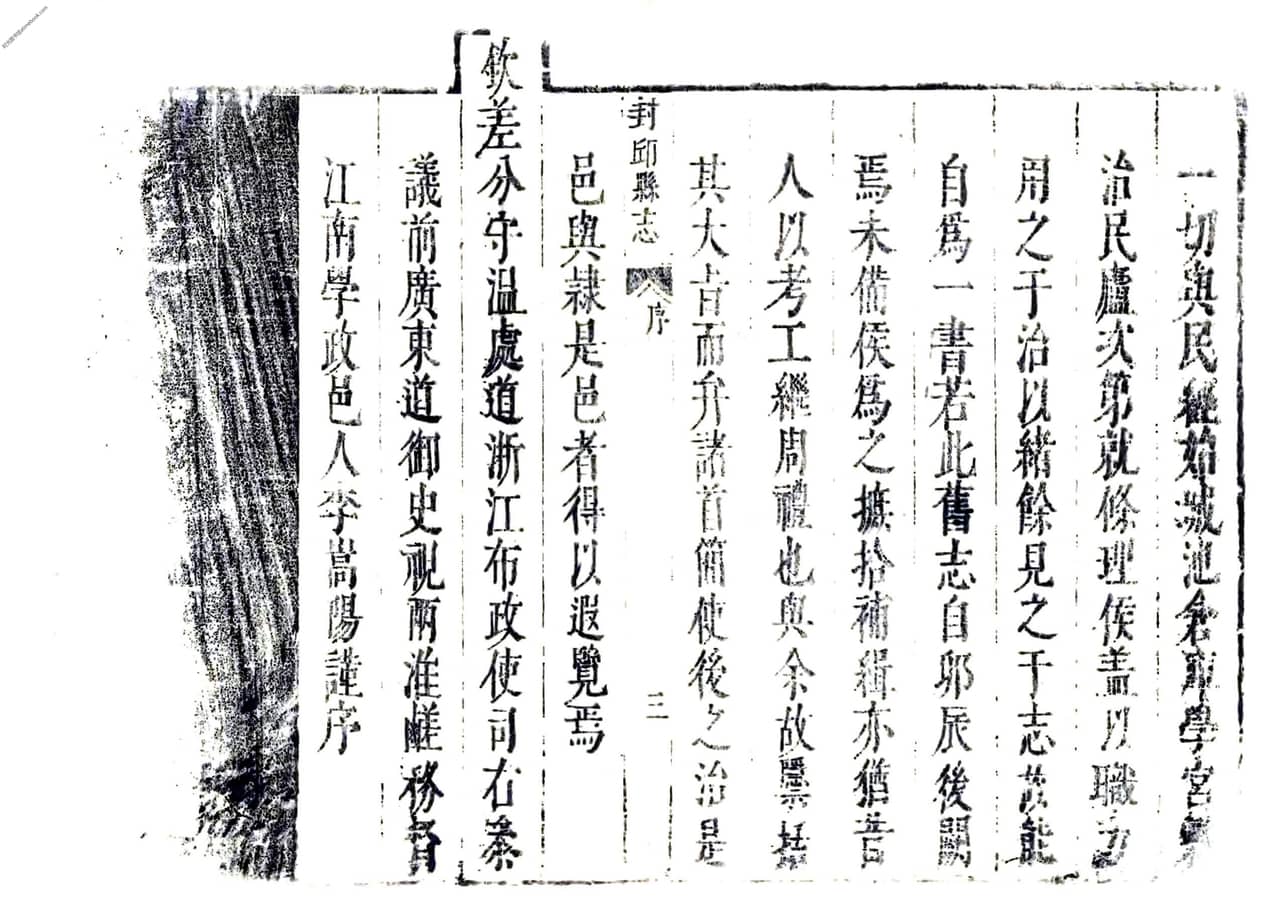 一切與民經始城池倉庫學宮
治民廬次第就條理侯盖以職方
用之于治以緒餘見之于志故能
自爲一書若此舊志自邜辰後闕
焉未備侯爲之摭拾補緝亦猶昔
人以考工繼周禮也與余故檃括
其大㫖而弁諸首簡使後之治是
封邱縣志 序 三
邑與隷是邑者得以遐覽焉
欽差分守温處道浙江布政使司右叅
議前廣東道御史視兩淮鹺務督
江南學政邑人李嵩陽謹序